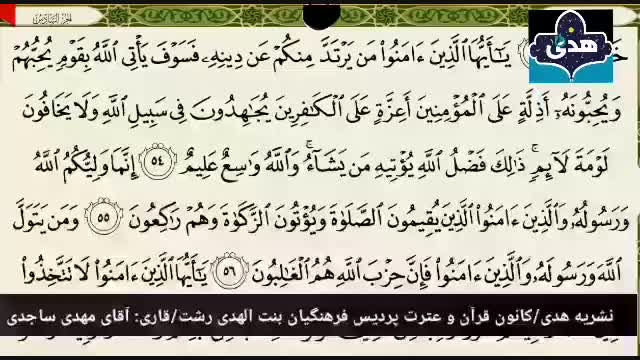 الجزء السادس
هدی
يَٰٓأَيُّهَا ٱلَّذِينَ ءَامَنُوا۟ مَن يَرْتَدَّ مِنكُمْ عَن دِينِهِۦ فَسَوْفَ يَأْتِى ٱللَّهُ بِقَوْمٍ يُحِبُّهُمْ
وَيُحِبُّونَهُۥٓ أَذِلَّةٍ عَلَى ٱلْمُؤْمِنِينَ أَعِزَّةٍ عَلَى ٱلْكَٰفِرِينَ يُجَٰهِدُونَ فِى سَبِيلِ ٱللَّهِ وَلَا يَخَافُونَ
لَوْمَةَ لَآئِمٍ ۚ ذَٰلِكَ فَضْلُ ٱللَّهِ يُؤْتِيهِ مَن يَشَآءُ ۚ وَٱللَّهُ وَٰسِعٌ عَلِيمٌ ٥٤ إِنَّمَا وَلِيُّكُمُ ٱللَّهُ
وَرَسُولُهُۥ وَٱلَّذِينَ ءَامَنُوا۟ ٱلَّذِينَ يُقِيمُونَ ٱلصَّلَوٰةَ وَيُؤْتُونَ ٱلزَّكَوٰةَ وَهُمْ رَٰكِعُونَ ٥٥ وَمَن يَتَوَلَّ
ٱللَّهَ وَرَسُولَهُۥ وَٱلَّذِينَ ءَامَنُوا۟ فَإِنَّ حِزْبَ ٱللَّهِ هُمُ ٱلْغَٰلِبُونَ ٥٦ يَٰٓأَيُّهَا ٱلَّذِينَ ءَامَنُوا۟ لَا تَتَّخِذُوا۟
نشریه هدی/کانون قرآن و عترت پردیس فرهنگیان بنت الهدی رشت/قاری: آقای مهدی ساجدی